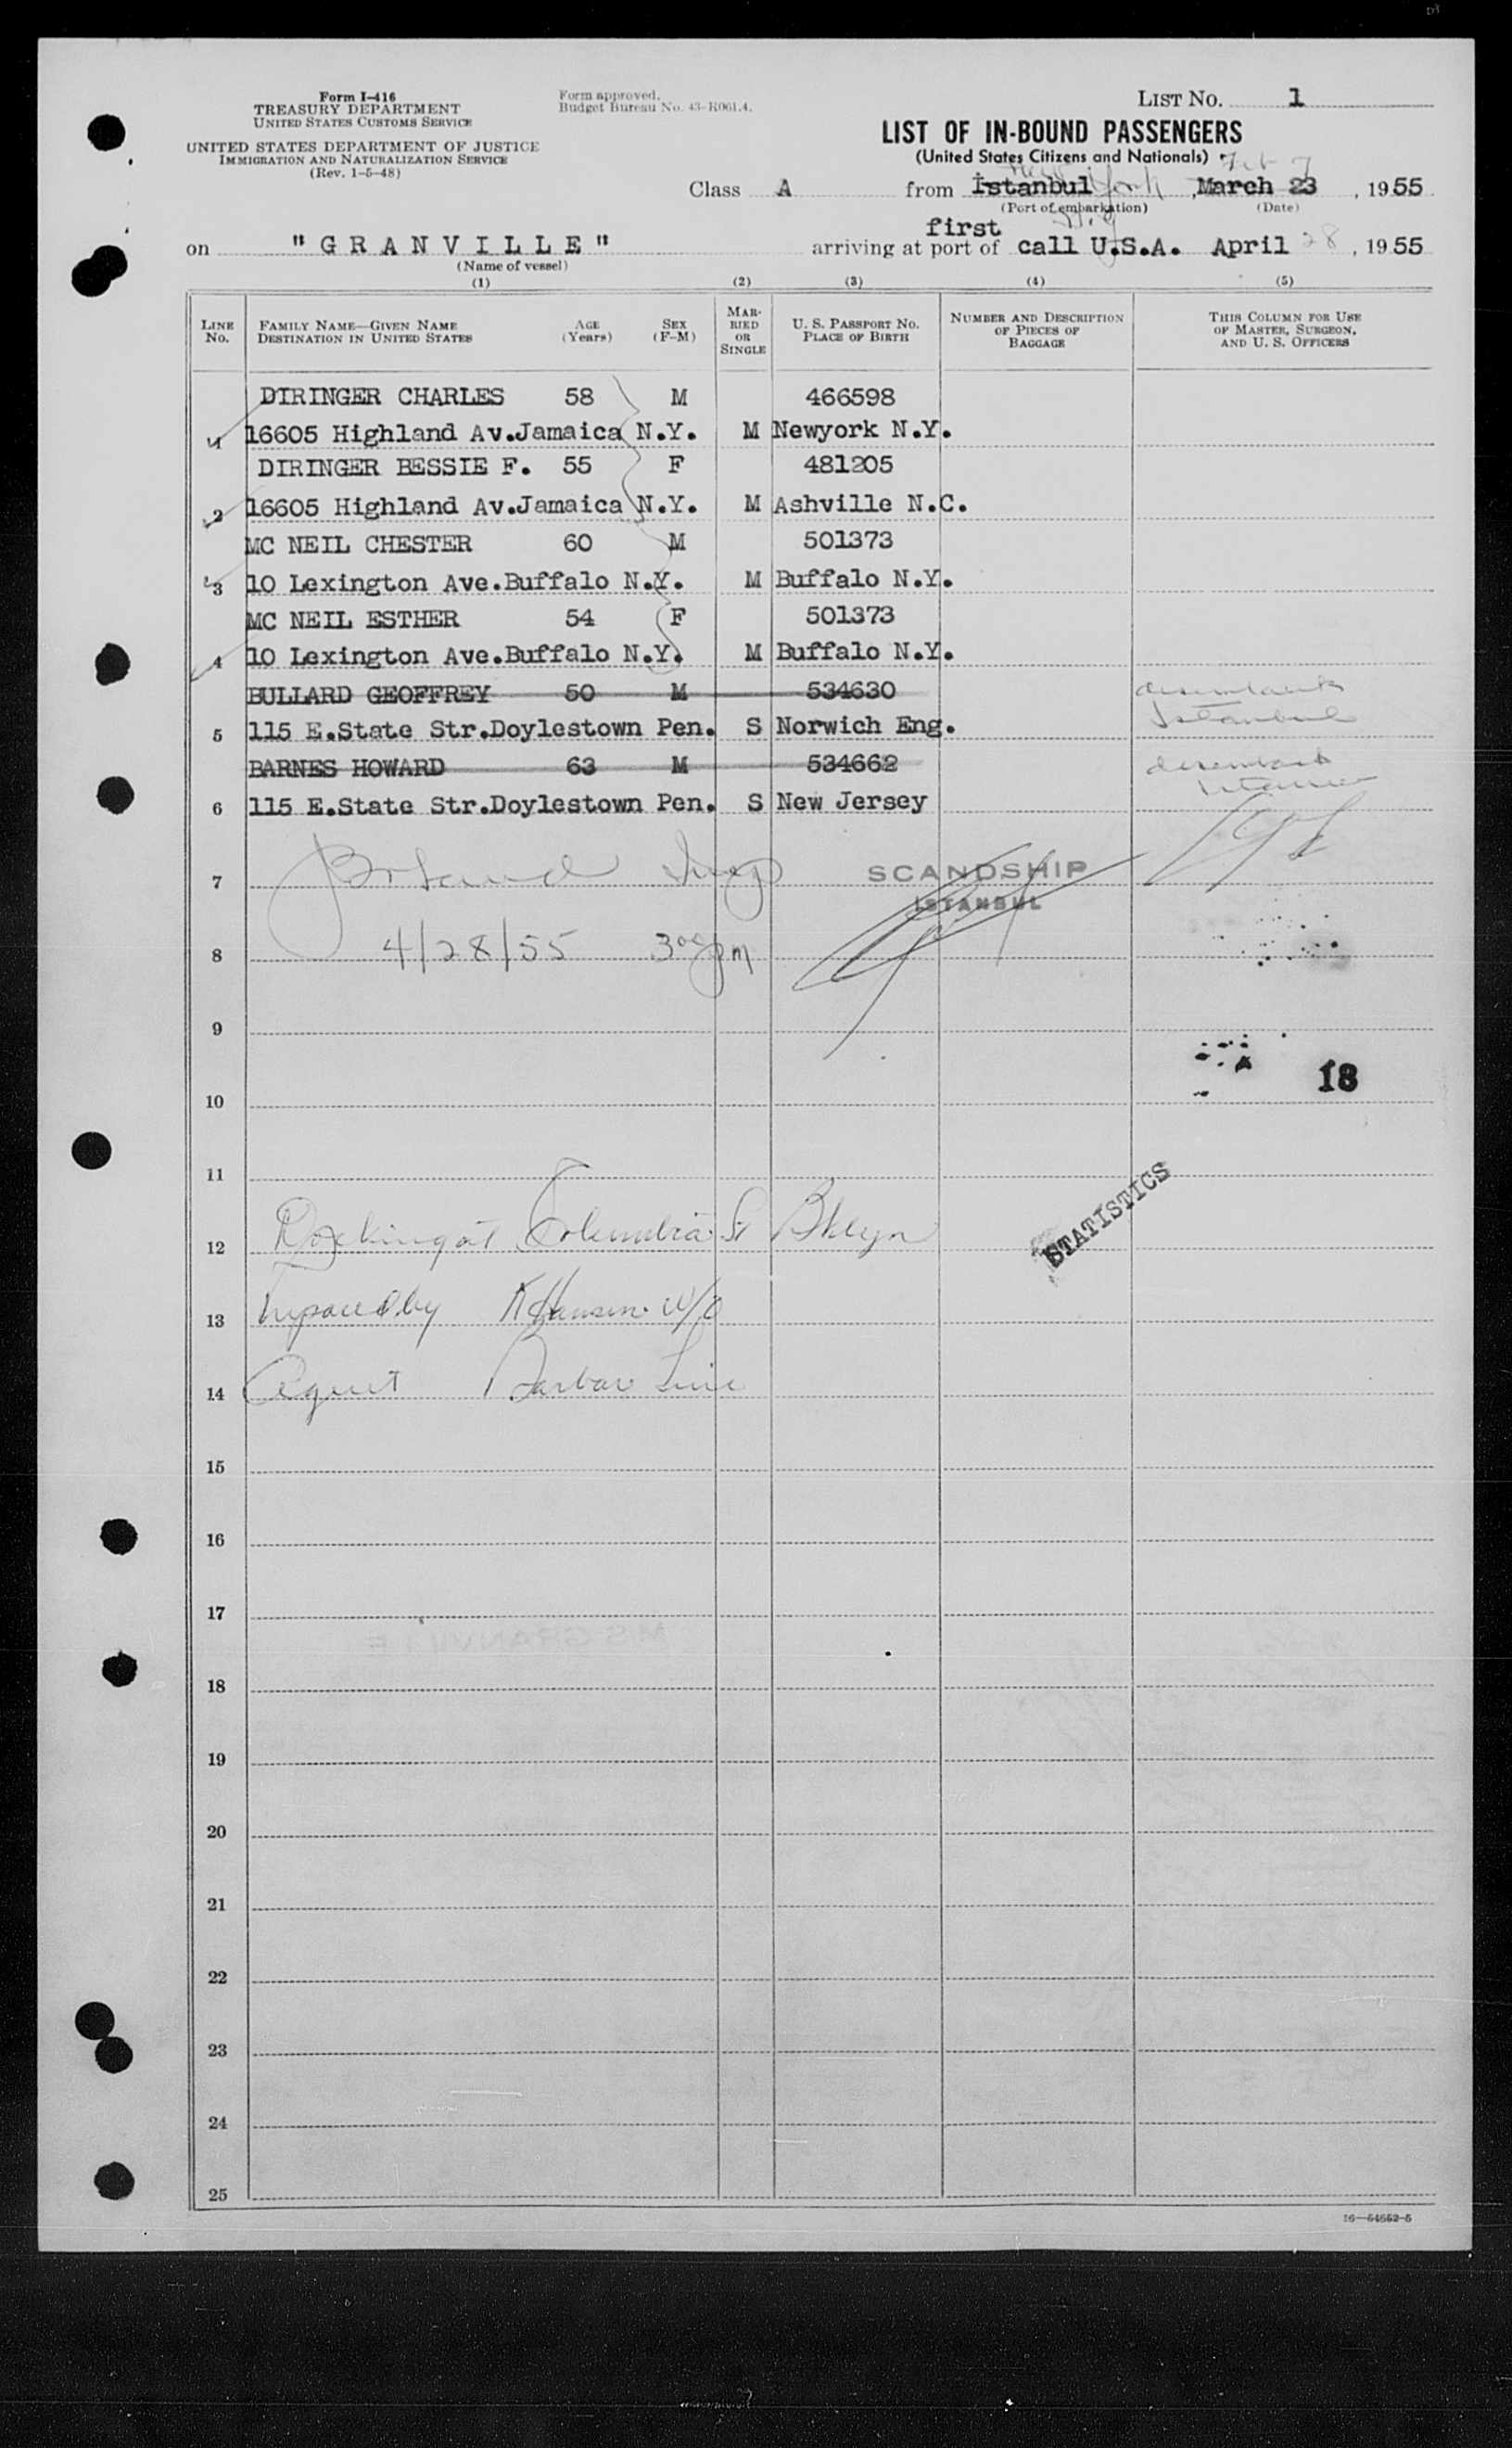 Form I-416
TREASURY DEPARTMENT
UNITED STATES CUSTOMS SERVICE
UNITED STATES DEPARTMENT OF JUSTICE
IMMIGRATION AND NATURALIZATION SERVICE
(Rev. 1-5-48)
Form approved.
Budget Bureau No. 43-R061.4.
LIST NO. 1
LIST OF IN-BOUND PASSENGERS
(United States Citizens and Nationals)
New York Feb 7
Class A from İstanbul, March 23, 1955
(Port of embarkation) (Date)
first
on "GRANVILLE" arriving at port of call U.S.A. April 28, 1955
(Name of vessel)
(1) (2) (3) (4) (5)
LINE NO. FAMILY NAME—GIVEN NAME DESTINATION IN UNITED STATES AGE (Years) SEX (F-M) MARRIED OR SINGLE U. S. PASSPORT NO. PLACE OF BIRTH NUMBER AND DESCRIPTION OF PIECES OF BAGGAGE THIS COLUMN FOR USE OF MASTER, SURGEON, AND U. S. OFFICERS
DIRINGER CHARLES 58 M 466598
1 16605 Highland Av.Jamaica N.Y. M Newyork N.Y.
DIRINGER BESSIE F. 55 F 481205
2 16605 Highland Av.Jamaica N.Y. M Ashville N.C.
MC NEIL CHESTER 60 M 501373
3 10 Lexington Ave.Buffalo N.Y. M Buffalo N.Y.
MC NEIL ESTHER 54 F 501373
4 10 Lexington Ave.Buffalo N.Y. M Buffalo N.Y.
BULLARD GEOFFREY 50 M 534630 disembark
5 115 E.State Str.Doylestown Pen. S Norwich Eng. Istanbul
BARNES HOWARD 63 M 534662 disembark
6 115 E.State Str.Doylestown Pen. S New Jersey
7 Insp SCANDSHIP
İSTANBUL
8 4/28/55 3 00 pm
9
18
10
11
STATISTICS
12 Docking at Columbia St Bklyn
13 by Hansen
14 Agent Barbar Line
15
16
17
M/S GRANVILLE
18
19
20
21
22
23
24
25
16—54652-5